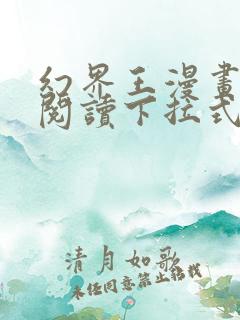 幻界王漫畫
閱讀下拉式
清月如歌
未經同意禁止轉載